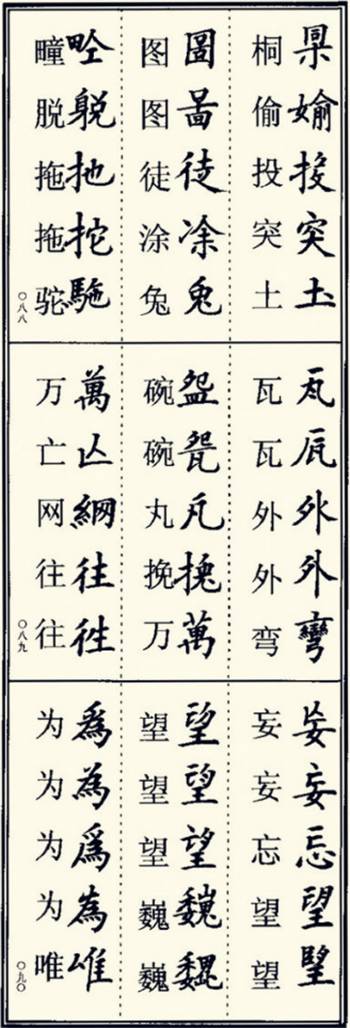 媮投突土
桐偷投突土
圖啚徒凃兔
图图徒涂兔
扡拕駞
疃脱拖拖驼
〇八八
瓦瓦外外彎
瓦瓦外外弯
盌㼝丸挽萬
碗碗丸挽万
萬亾網往徃
万亡网往往
〇八九
妄妄忘望朢
妄妄忘望望
望望望魏
望望望巍巍
爲為爲為唯
为为为为唯
〇九〇